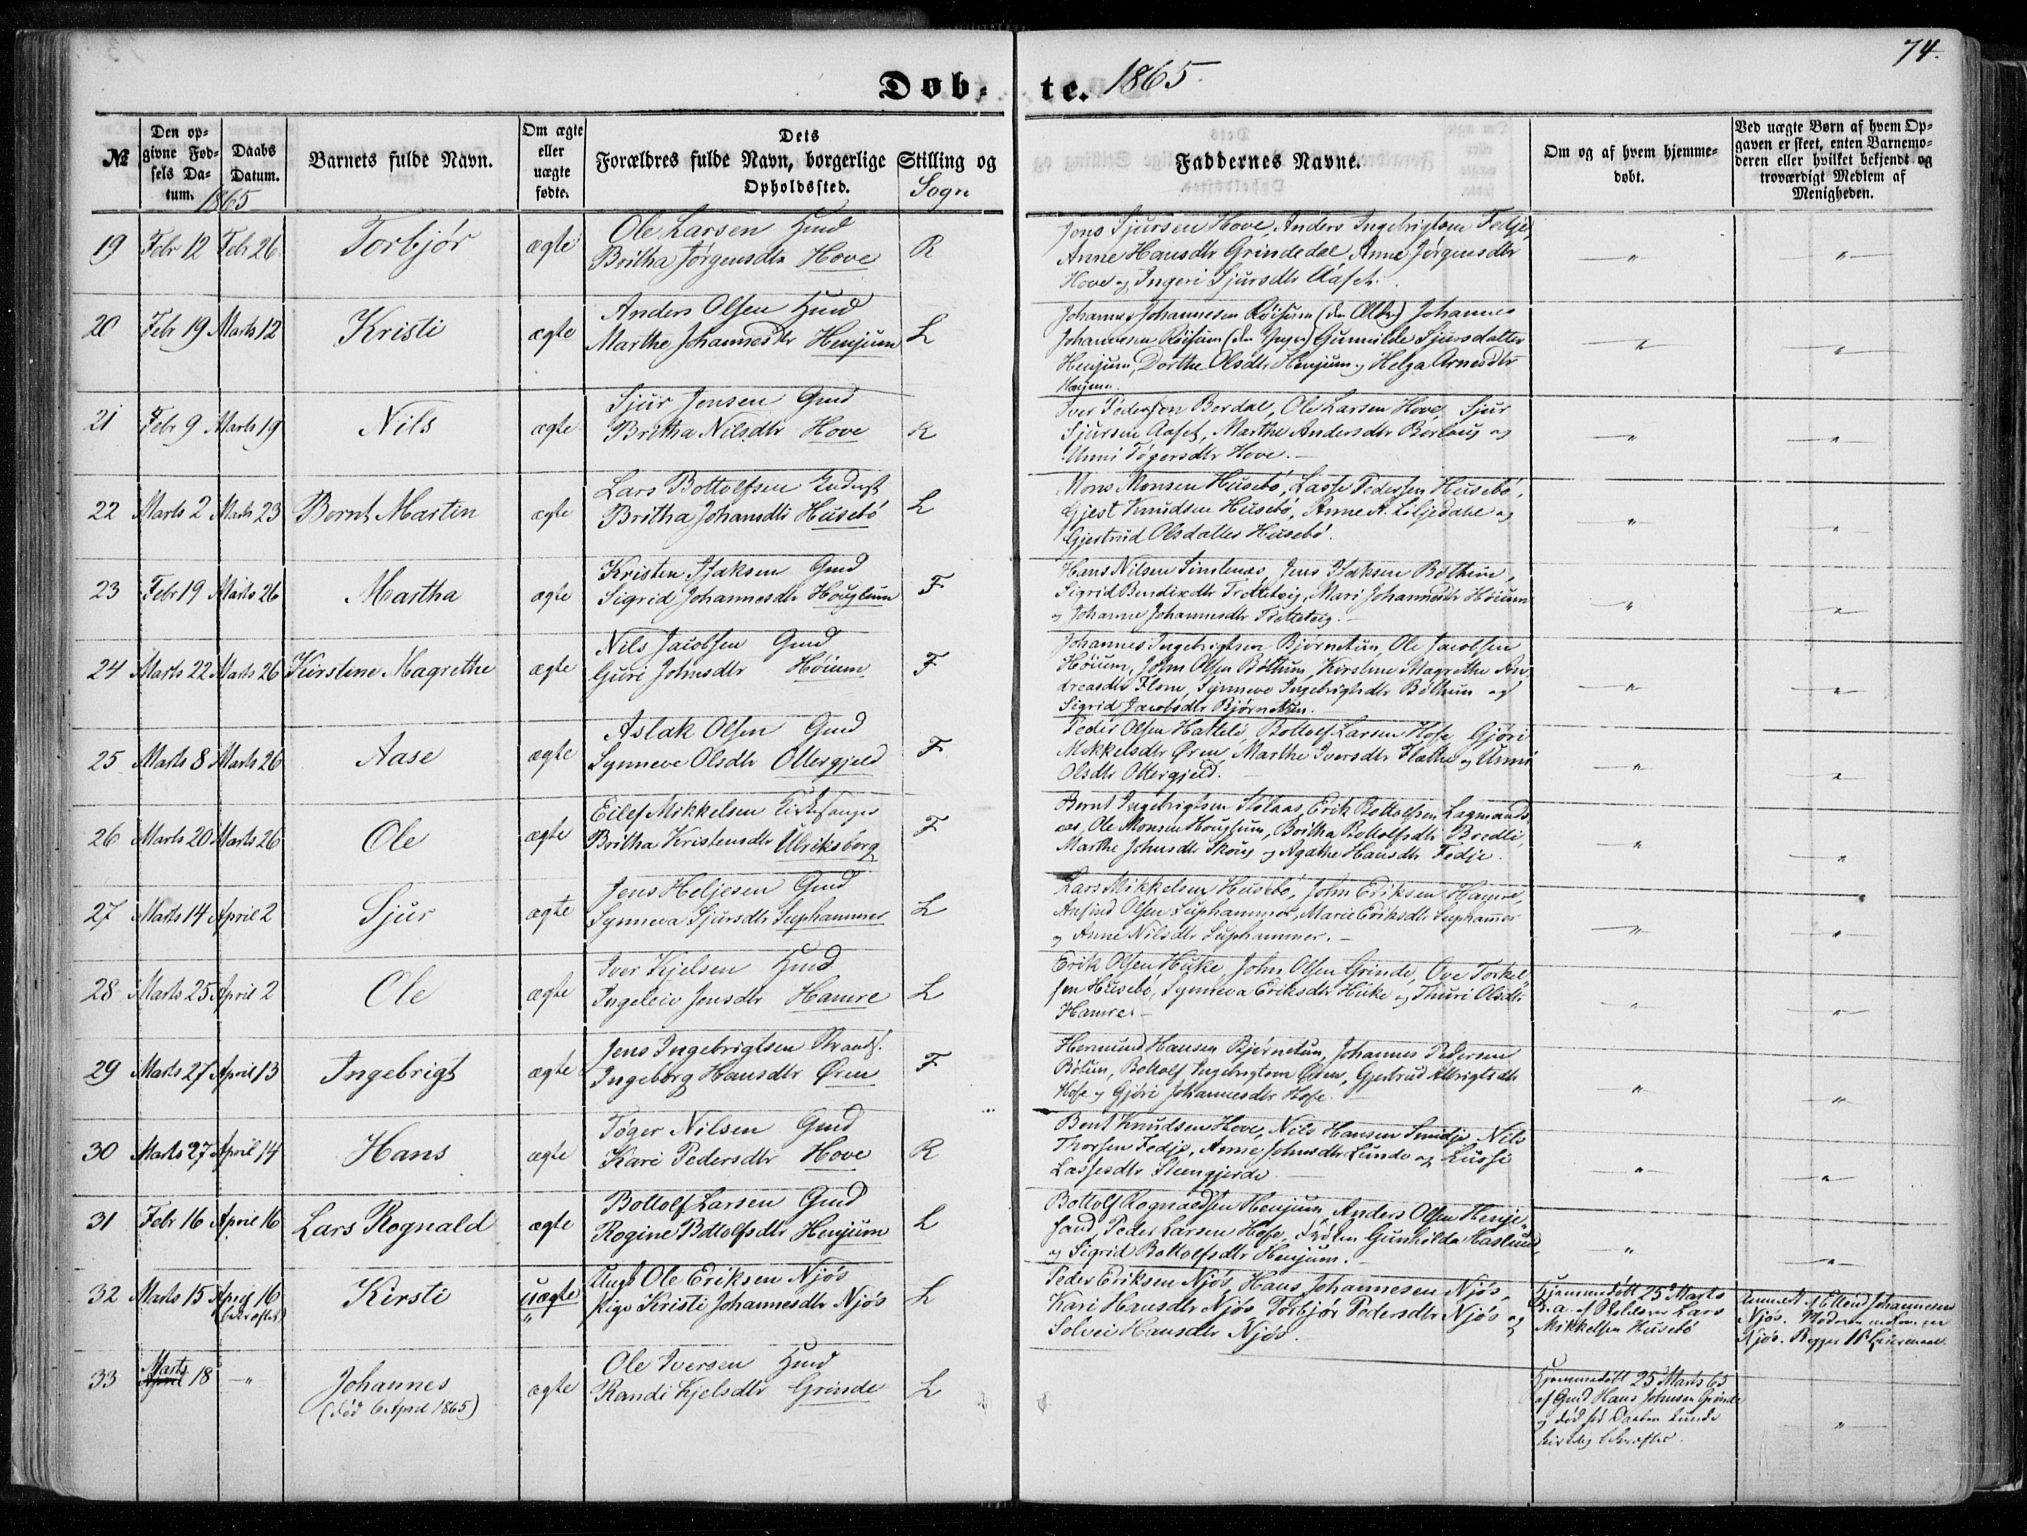 74.
Døb- te. 1865.
№
Den opgivne Fødsels Datum.
1865
Daabs Datum.
Barnets fulde Navn.
Om ægte eller uægte fødte.
Dets Forældres fulde Navn, borgerlige Stilling og Opholdssted.
Sogn
Faddernes Navne.
Om og af hvem hjemmedøbt.
Ved uægte Børn af hvem Opgaven er skeet, enten Barnemoderen eller hvilket bekjendt og troværdigt Medlem af Menigheden.
19 Febr 12 Febr 26 Torbjør ægte Ole Larsen Hmd
Britha Jørgensdtr Hove R
Jens Sjursen Hove, Anders Ingebrigtsen Fedje,
Anne Hansdtr Grindedal, Anne Jørgensdtr
Hove og Ingeri Sjursdtr Aaset.
20 Febr 19 Marts 12 Kristi ægte Anders Olsen Hmd
Marthe Johannesdtr Henjum L
Johannes Johannesen Röisum (den Ældr) Johannes
Johannesen Röisum (den Yngre) Gunnilde Sjursdatter
Henjum, Dorthe Olsdtr Henjum og Helga Arnesdtr
21 Febr 9 Marts 19 Nils ægte Sjur Jensen Gmd
Britha Nilsdtr Hove R
Iver Pedersen Bordal, Ole Larsen Hove, Sjur
Sjursen Aaset, Marthe Andersdtr Borlaug og
Unni Tøgersdtr Hove.
22 Marts 2 Marts 23 Bernt Martin ægte Lars Bottolfsen
Britha Johansdtr Husebö L
Mons Monsen Husebö, Lasse Pedersen Husebö,
Gjest Knudsen Husebö, Anne A. Liljedahl og
Gjertrud Olsdatter Husebö.
23 Febr 19 Marts 26 Martha ægte Kristen Isaksen Gmd
Sigrid Johannesdtr Houglum F
Hans Nilsen Simlenæs, Jens Isaksen Bøthun,
Sigrid Bendixdtr Tretteteig, Mari Johannesdtr Höium
og Johanne Johannesdtr Tretteteig.
24 Marts 22 Marts 26 Kirstine Magrethe ægte Nils Jacobsen Gmd
Guri Johnsdtr Höium F
Johannes Ingebrigtsen Bjørnetun, Ole Jacobsen
Höium, John Olsen Bøthun, Kirstine Magrethe An-
dreasdtr Flom, Synneve Ingebrigtsdtr Bøthun og
Sigrid Jacobsdtr Bjørnetun.
25 Marts 8 Marts 26 Aase ægte Aslak Olsen Gmd
Synneve Olsdtr Ottergjeld F
Peder Olsen Hatleli, Bottolf Larsen Hofe, Gjöri
Mikkelsdtr Øren, Marthe Iversdtr Flæthe og Unni
Olsdtr Ottergjeld.
26 Marts 20 Marts 26 Ole ægte Eilef Mikkelsen Kirkesanger
Britha Kristensdtr Ulriksborg F
Bernt Ingebrigtsen Stölaas, Erik Bottolfsen Lagmands-
aas, Ole Monsen Houglum, Britha Bottolfsdtr Bredli,
Marthe Johnsdtr Skoug og Agathe Hansdtr Fedje.
27 Marts 14 April 2 Sjur ægte Jens Heljesen Gmd
Synneva Sjursdtr Suphammer L
Lars Mikkelsen Husebö, John Eriksen Hamre,
Anfind Olsen Suphammer, Marie Eriksdtr Suphamer
og Anne Nilsdtr Suphammer.
28 Marts 25 April 2 Ole ægte Iver Kjelsen Hmd
Ingeleiv Jensdtr Hamre L
Erik Olsen Hirke, John Olsen Grinde, Ove Torkel-
sen Husebö, Synneva Eriksdtr Hirke og Thuri Olsdtr
Hamre.
29 Marts 27 April 13 Ingebrigt ægte Jens Ingebrigtsen Strands.
Ingeborg Hansdtr Øren F
Hermund Hansen Bjørnetun, Johannes Pedersen
Bøtun, Bottolf Ingebrigtsen Øren, Gjertrud Albrigtsdtr
Hofe og Gjöri Johannesdtr Hofe.
30 Marts 27 April 14 Hans ægte Töger Nilsen Gmd
Kari Pedersdtr Hove R
Bent Knudsen Hove, Nils Hansen Smidje, Nils
Thorsen Fedje, Anne Johnsdtr Lunde og Lussi
Lassesdtr Steengjerde
31 Febr 16 April 16 Lars Rognald ægte Bottolf Larsen Gmd
Rogine Bottolfsdtr Henjum L
Bottolf Rognaldsen Henjum, Anders Olsen Henje-
sand, Peder Larsen Hofe, Frøken Gunhilda Haslund
og Sigrid Bottolfsdtr Henjum.
32 Marts 15 April 16 (bekræftet) Kirsti uægte Ungk Ole Eriksen Njøs
Pige Kristi Johannesdtr Njøs L
Peder Eriksen Njøs, Hans Johannesen Njøs,
Kari Hansdtr Njøs, Torbjør Pedersdtr Njøs og
Solvei Hansdtr Njøs.
Hjemmedøbt 25de Marts
d. a. af Skolelærer Lars
Mikkelsen Husebö
Anmeldt af Johannesen
Njøs. Njøs. Begges 1ste Leiermaal.
33 April Marts 18 Johannes
(død 6 April 1865) ægte Ole Iversen Hmd
Randi Kjelsdtr Grinde L
Hjemmedøbt 25 Marts 65
af Gmd Hans Johnsen Grinde
og død før Daaben kunde
kirkelig bekræftes.